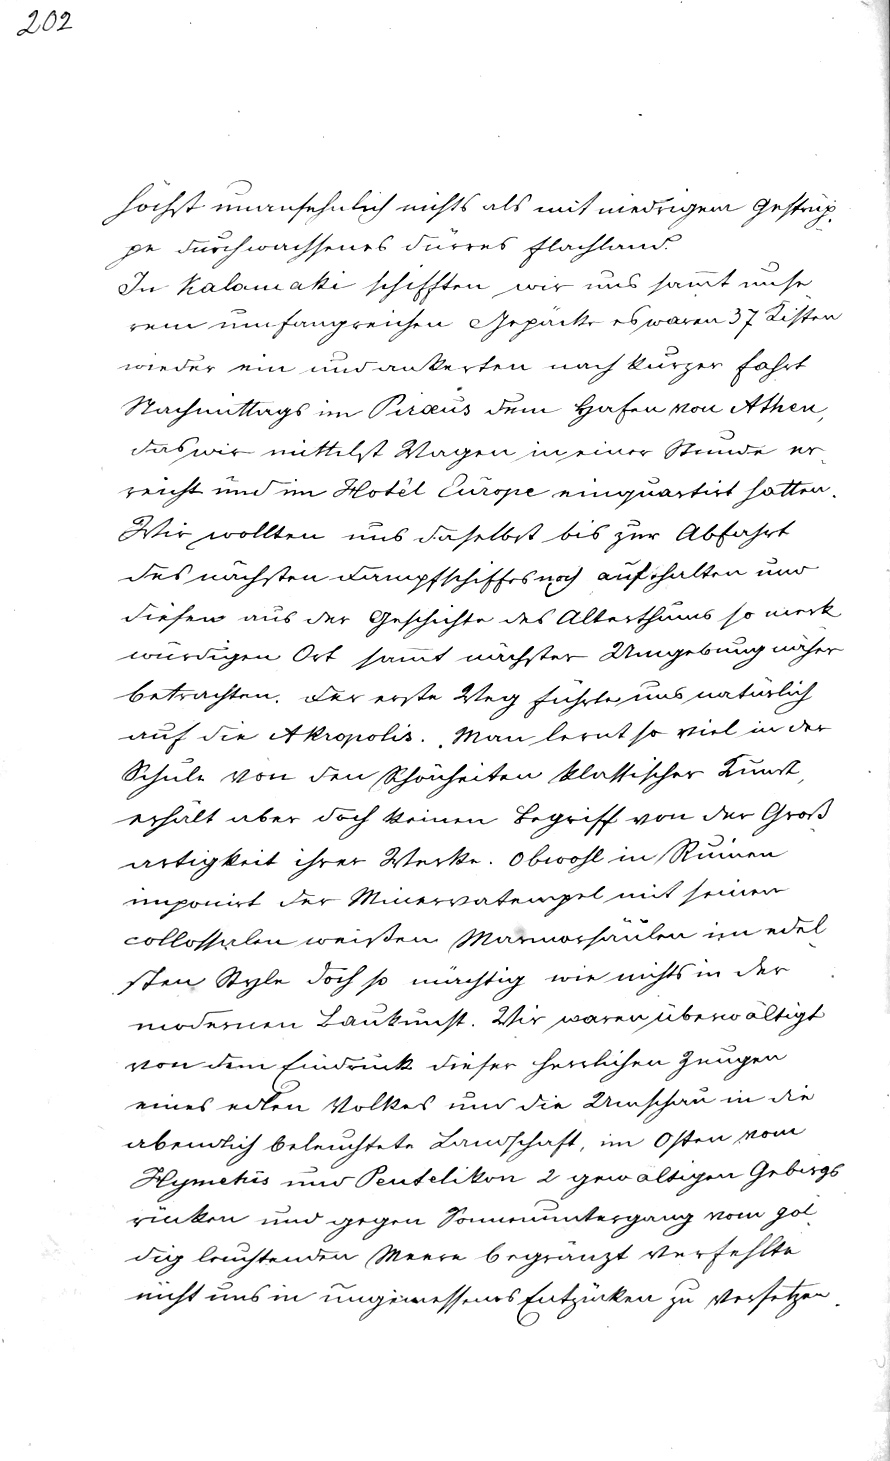 202
höchst unansehnlich nichts als mit niedrigem Gestrüp-
pe durchwachsenes dürres Flachland.
In Kalamaki schifften wir uns sam̄t unse
rem umfangreichen Gepäcke es waren 37 Kisten
wieder ein und ankerten nach kurzer Fahrt
Nachmittags im Piræus dem Hafen von Athen,
das wir mittelst Wagen in einer Stunde er-
reicht und im Hotél Europe einquartirt hatten.
Wir wollten uns daselbst bis zur Abfahrt
des nächsten Dampfschiffes noch aufhalten und
diesen aus der Geschichte des Alterthums so merk
würdigen Ort sam̄t nächster Umgebung näher
betrachten. Der erste Weg führte uns natürlich
auf die Akropolis. Man lernt so viel in der
Schule von den Schönheiten klassischer Kunst,
erhält aber doch keinen Begriff von der Groß
artigkeit ihrer Werke. Obwohl in Ruinen
imponirt der Minervatempel mit seinen
collossalen weißen Marmorsäulen im edel
sten Style doch so mächtig wie nichts in der
modernen Baukunst. Wir waren überwältigt
von dem Eindruck dieser herrlichen Zeugen
eines edlen Volkes und die Umschau in die
abendlich beleuchtete Landschaft, im Osten vom
Hymetus und Pentelikon 2 gewaltigen Gebirgs
rücken und gegen Sonnenuntergang vom gol
dig leuchtenden Meere begränzt verfehlte
nicht uns in ungemessenes Entzücken zu versetzen.